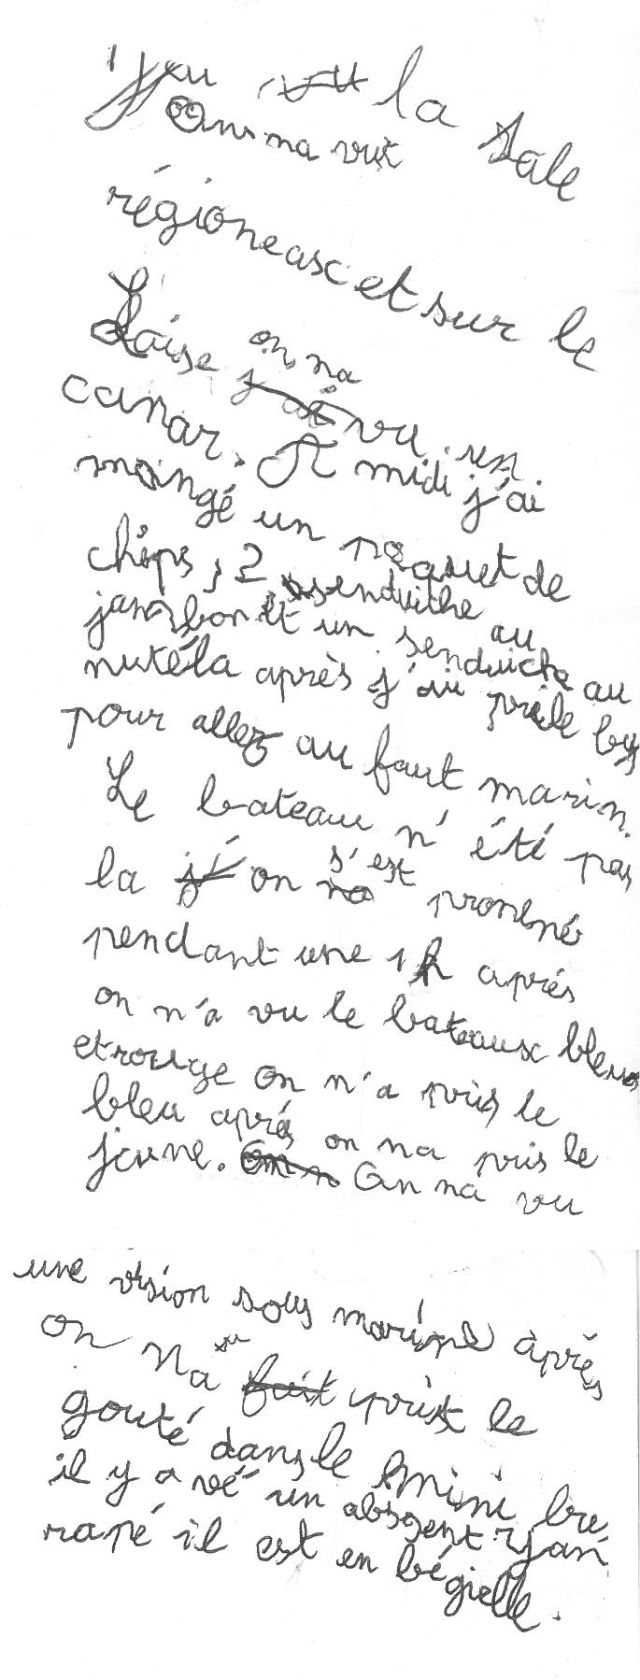 la sale
On na vu
régioneasc et sur le
Loaise on na vu un
canar. A midi j'ai
mangé un paquet de
chips, 2 senduithe au
janbon et un senduiche au
nutéla après j'ai pris le bus
pour allez au faut marin.
Le bateau n'été pas
la on s'est promené
pendant une 1h aprés
on n'a vu le bateaux bleu
et rouge on n'a pris le
bleu aprés on na pris le
jaune. On na vu
une vision sous marine après
on na pris le
gouté dans le mini bu
il y a vé un absent ryan
rapé il est en bégielle.